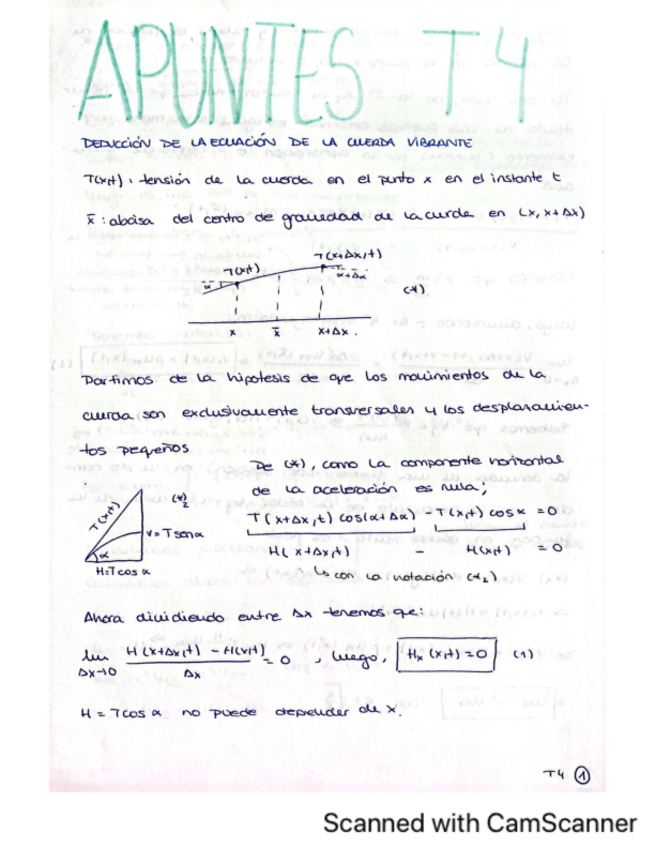 APUNTES T4
DEDUCCIÓN DE LA ECUACIÓN DE LA CUERDA VIBRANTE
T(x,t): tensión de la cuerda en el punto x en el instante t
x̄: abcisa del centro de gravedad de la curda en (x, x+Δx)
T(x+Δx,t)
T(x,t)
α+Δα
α
(*)
x x̄ x+Δx.
Partimos de la hipotesis de que los movimientos de la
cuerda son exclusivamente transversales y los desplazamien-
tos pequeños
De (*), como la componente horizontal
de la aceleración es nula;
(*)₂
T(x,t)
V=Tsenα
α
H=Tcosα
T(x+Δx,t) cos(α+Δα) - T(x,t) cosα = 0
H(x+Δx,t) - H(x,t) = 0
↳ con la notación (*₂)
Ahora dividiendo entre Δx tenemos que:
lim H(x+Δx,t) - H(x,t) = 0, luego, Hₓ(x,t)=0 (1)
Δx→0 Δx
H = Tcosα no puede depender de x.
T4 ①
Scanned with CamScanner